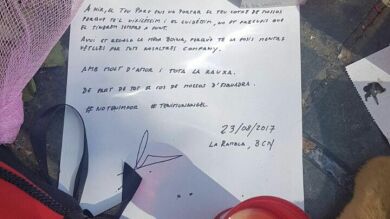 Ahir, el teu pare ens va portar el teu cotxe de mossos
perquè te'l vigiléssim i el cuidéssim, no et preocupis que
el tindrem sempre a punt.
Avui et regalo la meva boina, perquè te la posis mentre
vetlles per tots nosaltres company.
Amb molt d'amor i tota la rauxa.
De part de tot el cos de Mossos d'Esquadra.
#NOTENIMPOR #TENIMUNANGEL
23/08/2017
La Rambla, BCN